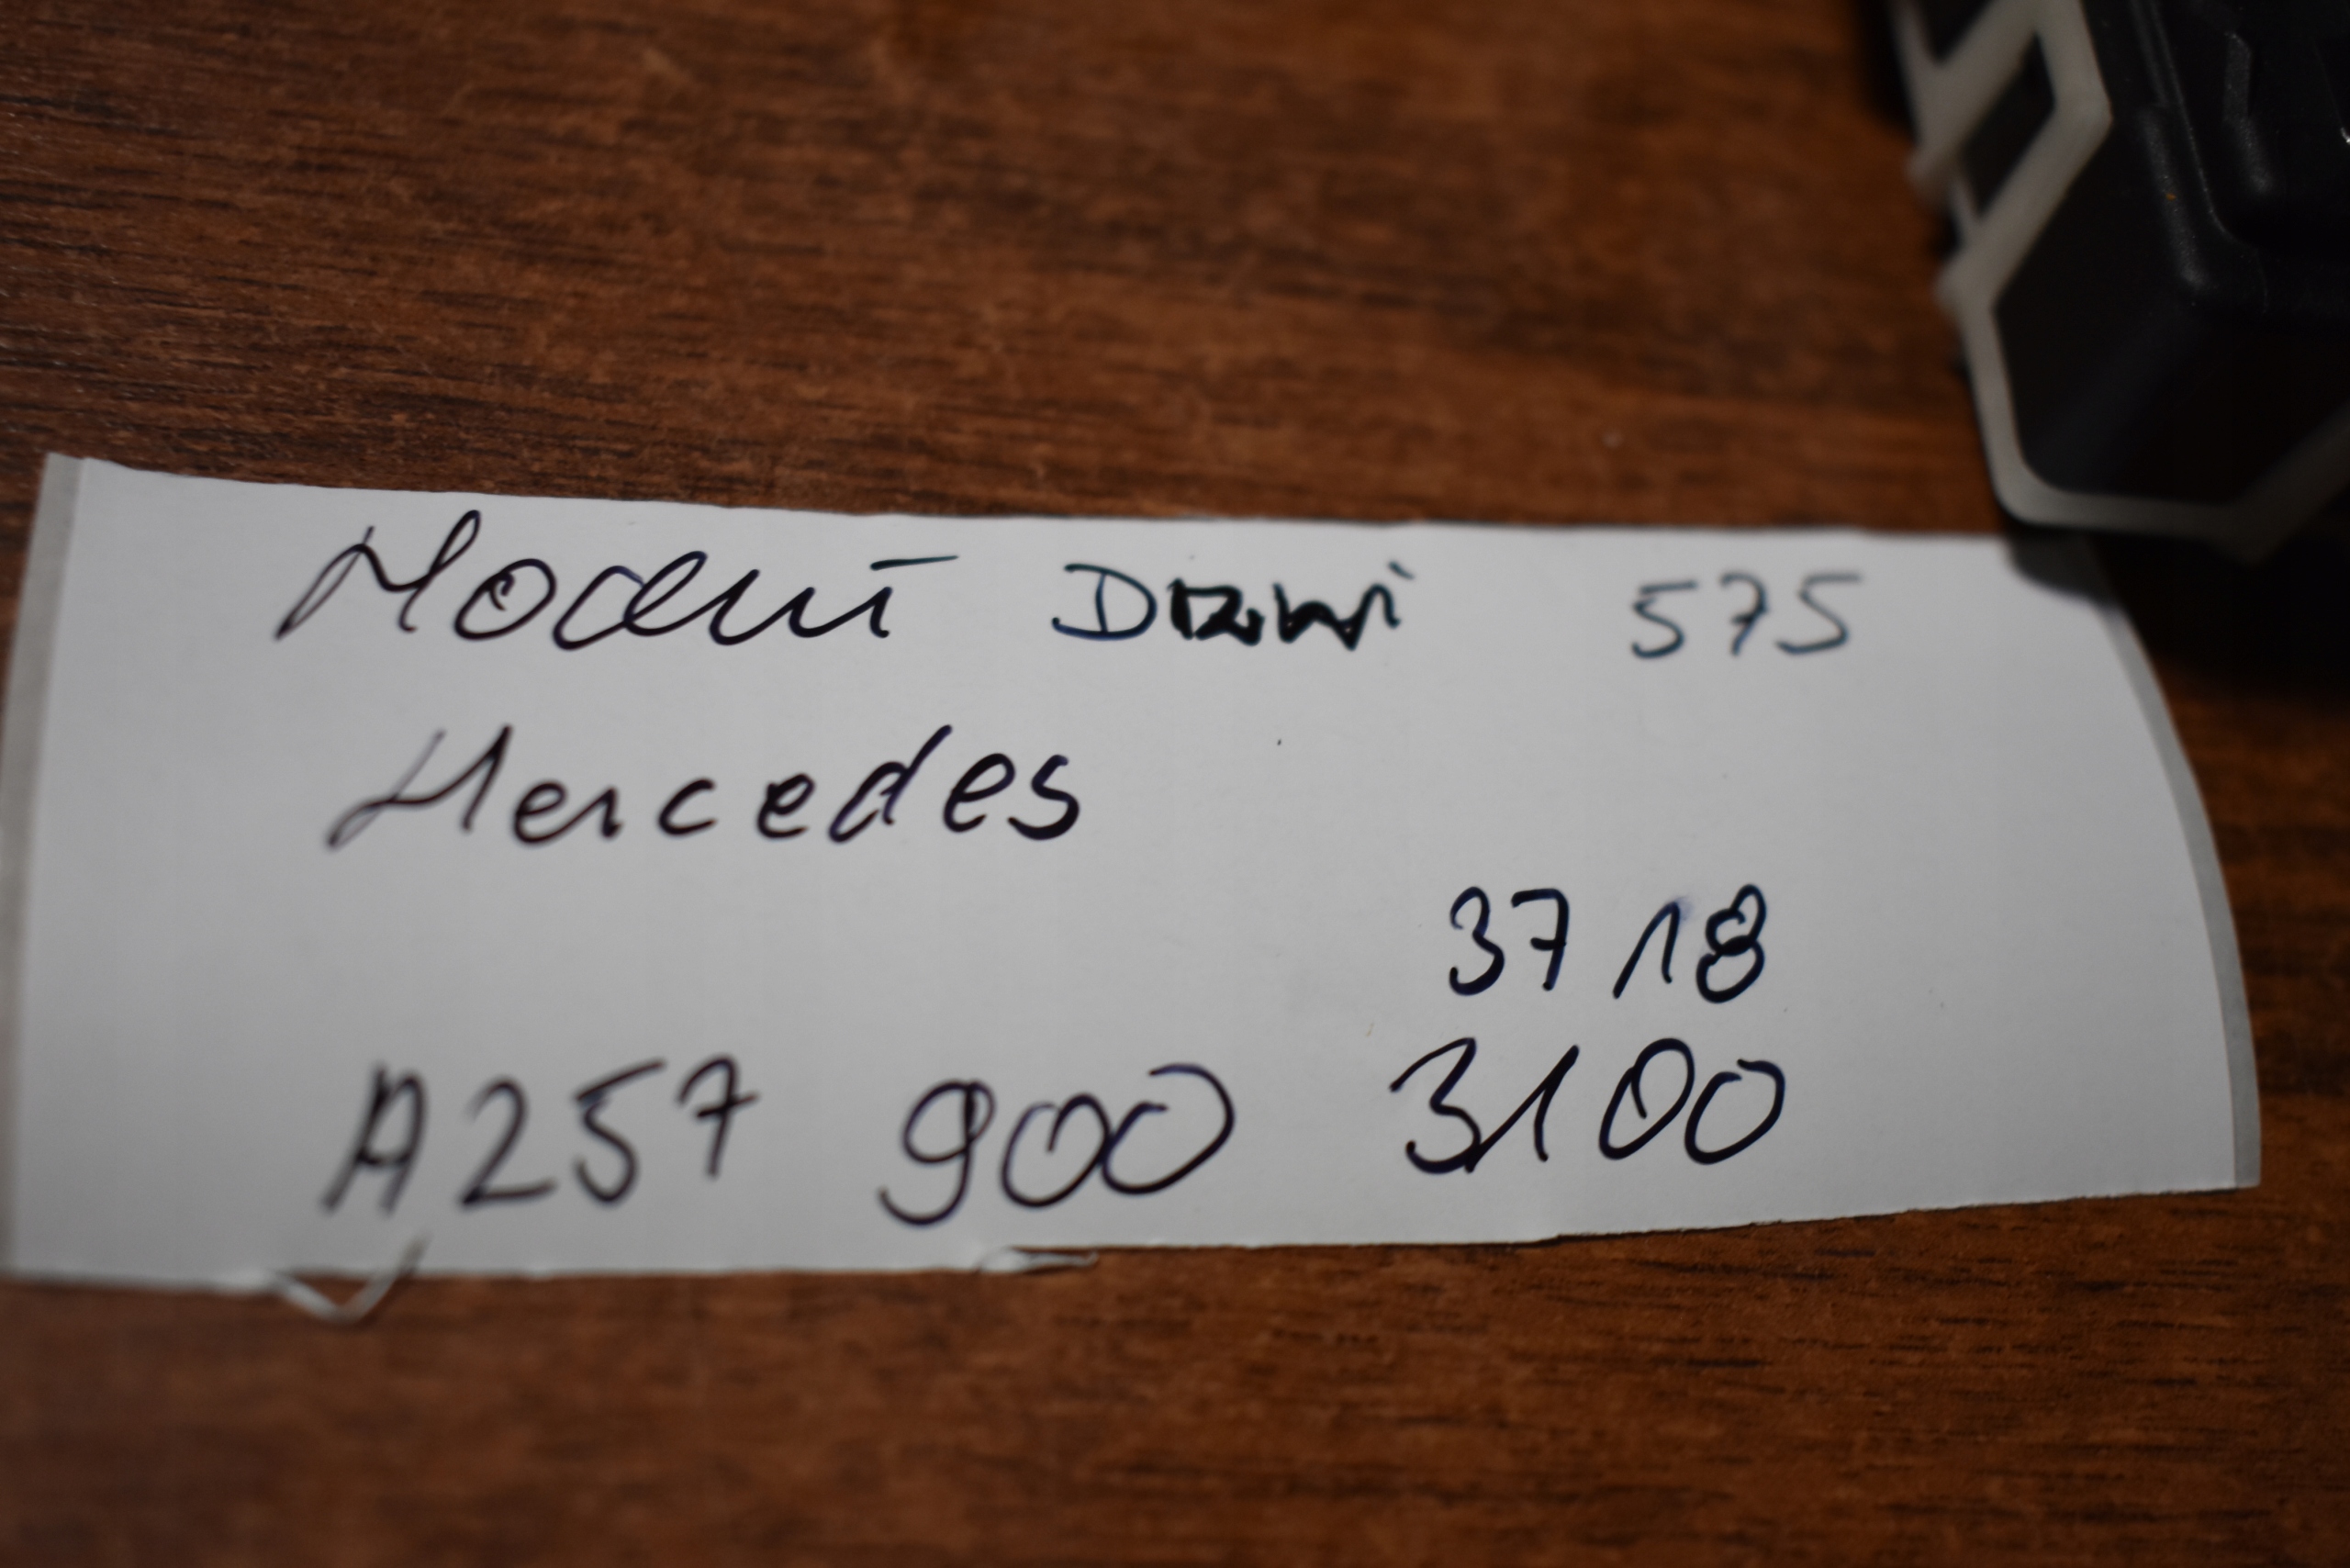 Moduł Drzwi 575
Mercedes
3718
A257 900 3100